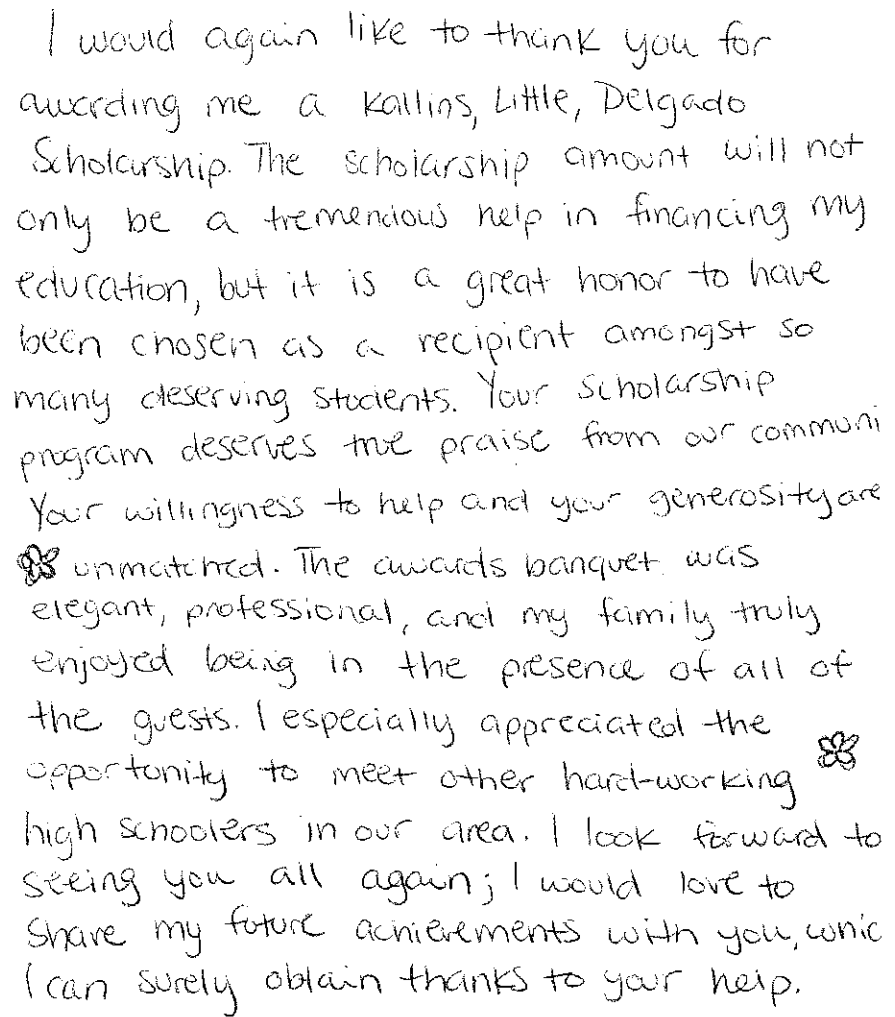 I would again like to thank you for
awarding me a Kallins, Little, Delgado
Scholarship. The scholarship amount will not
only be a tremendous help in financing my
education, but it is a great honor to have
been chosen as a recipient amongst so
many deserving students. Your scholarship
program deserves true praise from our communi
Your willingness to help and your generosity are
unmatched. The awards banquet was
elegant, professional, and my family truly
enjoyed being in the presence of all of
the guests. I especially appreciated the
opportunity to meet other hard-working
high schoolers in our area. I look forward to
seeing you all again; I would love to
share my future achievements with you, whic
I can surely obtain thanks to your help.